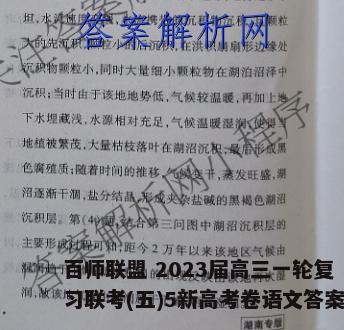 坦,水流速度
大的先沉积
小的后沉积,在洪积扇扇形边缘处
沉积物颗粒小,同时大量细小颗粒物在湖泊沼泽中
沉积;当时由于该地地势低,气候较温暖,再加上地
下水埋藏浅,水源相对充足,气候温暖湿润,使得当
地植被繁茂,大量枯枝落叶在湖沼沉积,最后形成黑
色腐殖质;随着时间的推移,气候变干,蒸发旺盛,湖
沼逐渐干涸,盐分结晶,形成夹杂盐碱的黑褐色湖沼
沉积层。第(4)问,结合第三问图中湖沼沉积层的
主要形成过程可知;距今2万年以来该地区气候由
润,故该
湖南专版
答案解析网
答案解析网小程序
百师联盟 2023届高三一轮复
习联考(五)5新高考卷语文答案